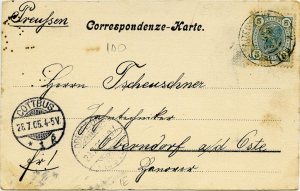 Preussen
Correspondenze-Karte.
100
Herrn Tscheuschner
Zahntechniker
Oberndorf a/d Oste
Hanover
COTTBUS
28.7.05.4-5V.